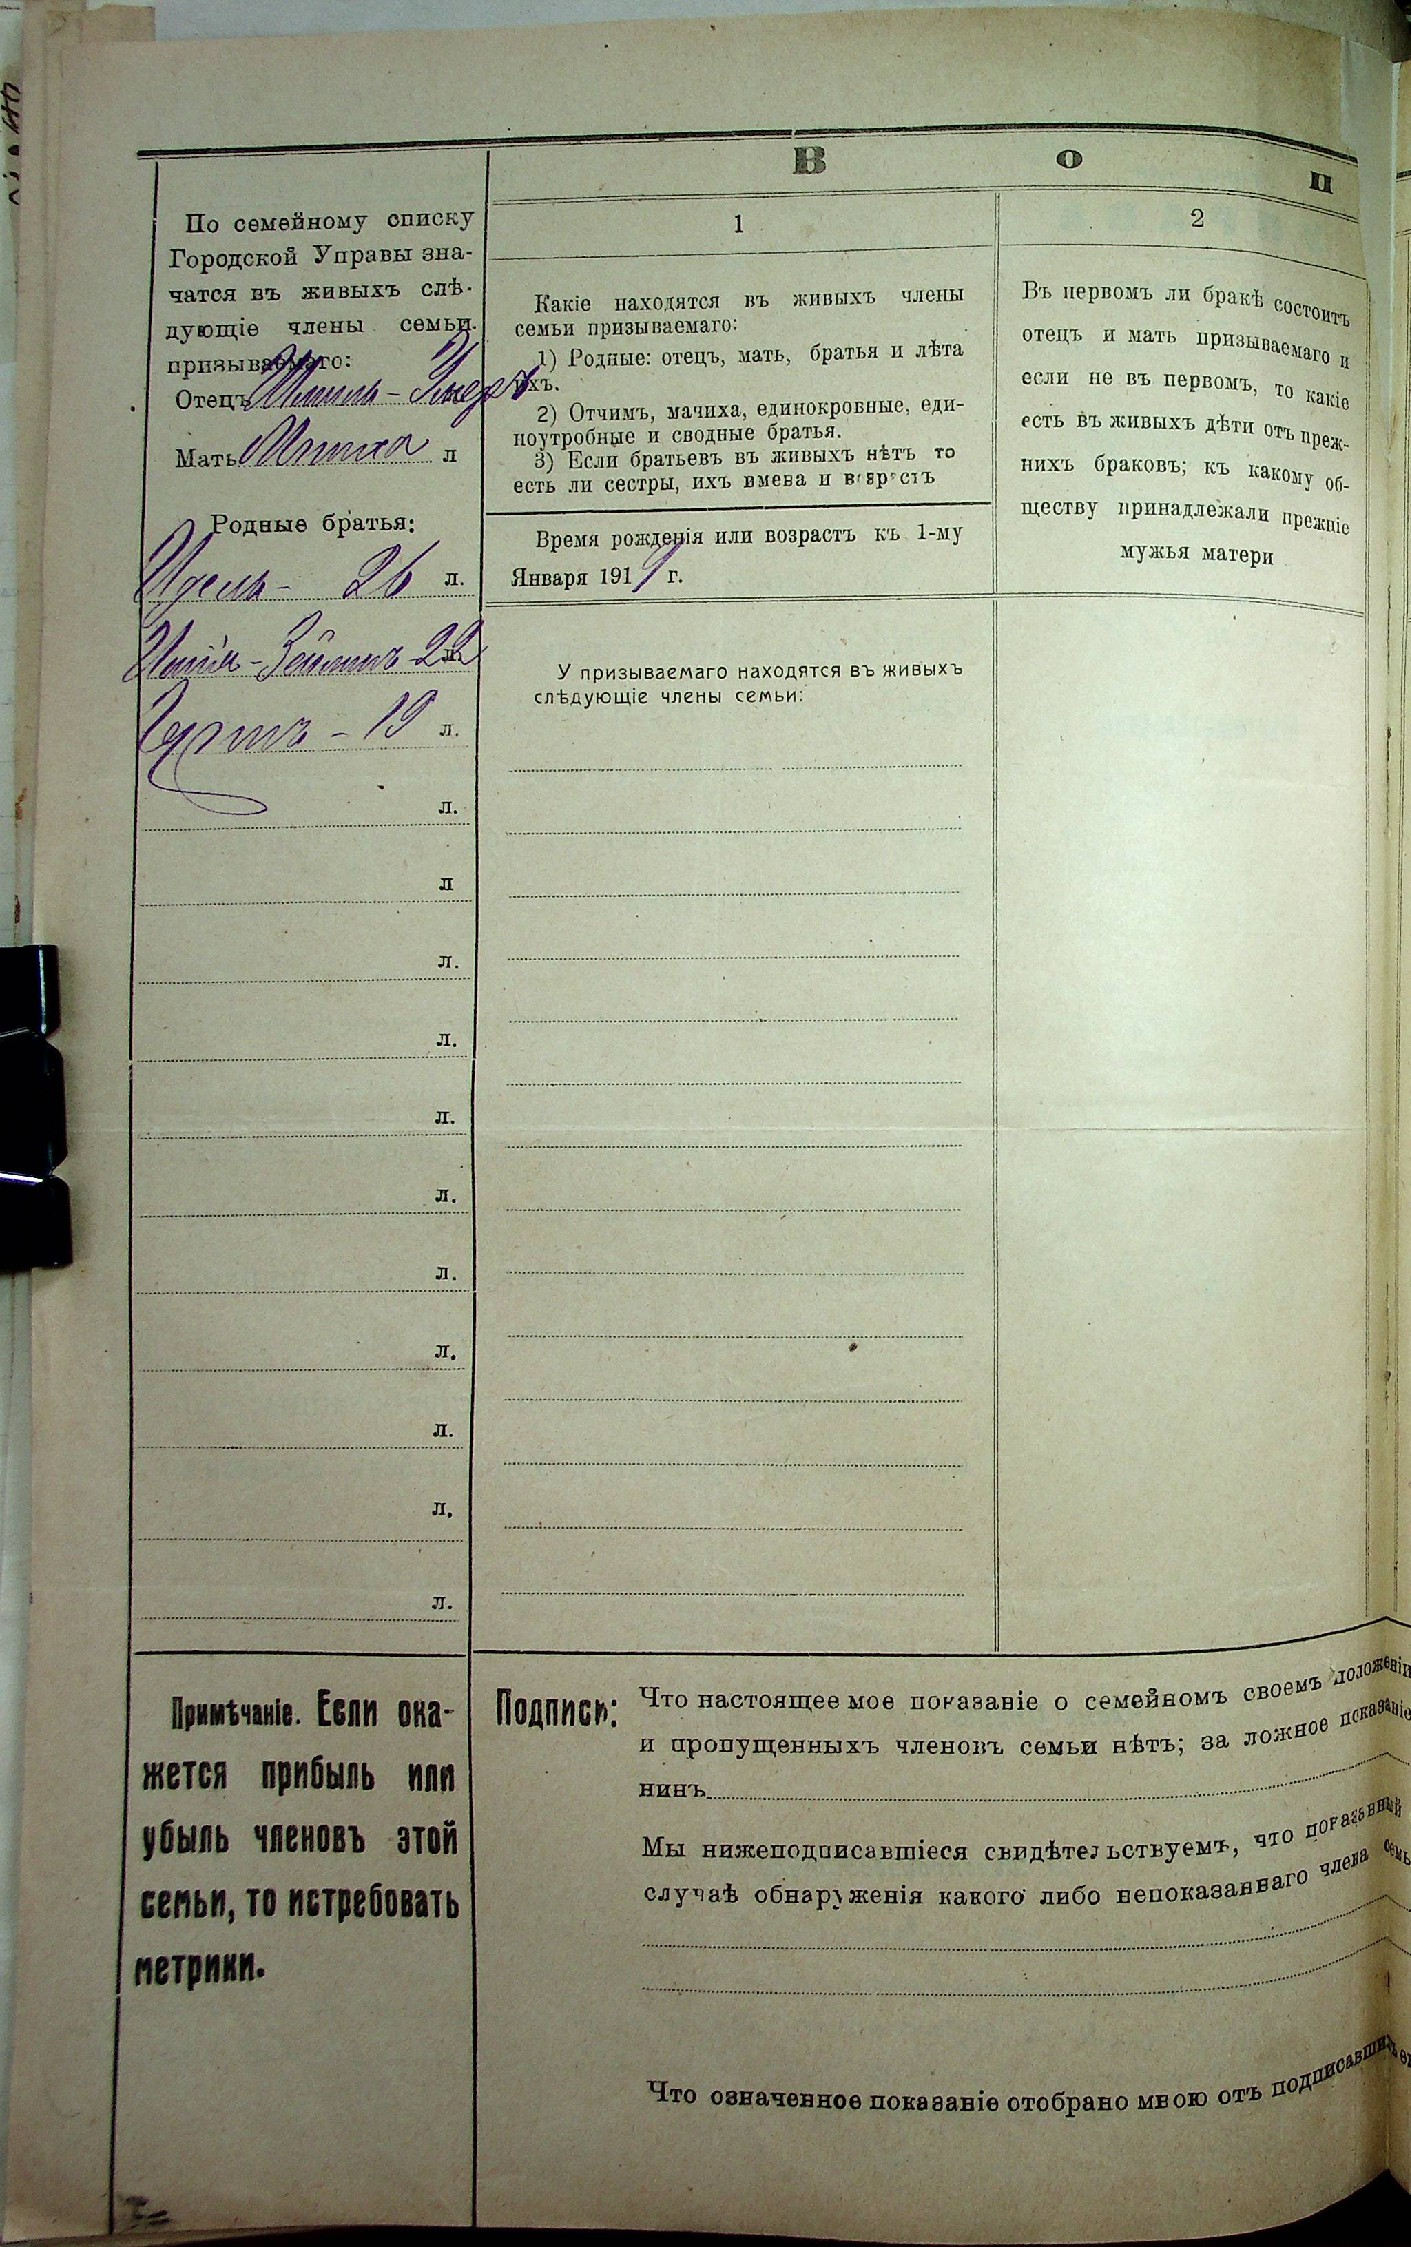 В о п
По семейному списку
Городской Управы зна-
чатся въ живыхъ слѣ-
дующіе члены семьи
призываемаго:
Отецъ
Мать л
Родные братья:
26 л.
22 л.
19 л.
л.
л
л.
л.
л.
л.
л.
л.
л.
л.
л.
1
Какіе находятся въ живыхъ члены
семьи призываемаго:
1) Родные: отецъ, мать, братья и лѣта
ихъ.
2) Отчимъ, мачиха, единокровные, еди-
ноутробные и сводные братья.
3) Если братьевъ въ живыхъ нѣтъ то
есть ли сестры, ихъ имена и возрастъ
Время рожденія или возрастъ къ 1-му
Января 191 г.
У призываемаго находятся въ живыхъ
слѣдующіе члены семьи:
2
Въ первомъ ли бракѣ состоитъ
отецъ и мать призываемаго и
если не въ первомъ, то какіе
есть въ живыхъ дѣти отъ преж-
нихъ браковъ; къ какому об-
ществу принадлежали прежніе
мужья матери
Примѣчаніе. Если ока-
жется прибыль или
убыль членовъ этой
семьи, то истребовать
метрики.
Подписи:
Что настоящее мое показаніе о семейномъ своемъ положеніи
и пропущенныхъ членовъ семьи нѣтъ; за ложное показаніе
нинъ
Мы нижеподписавшіеся свидѣтельствуемъ, что показанный
случаѣ обнаруженія какого либо непоказаннаго члена семь
Что означенное показаніе отобрано мною отъ подписавших